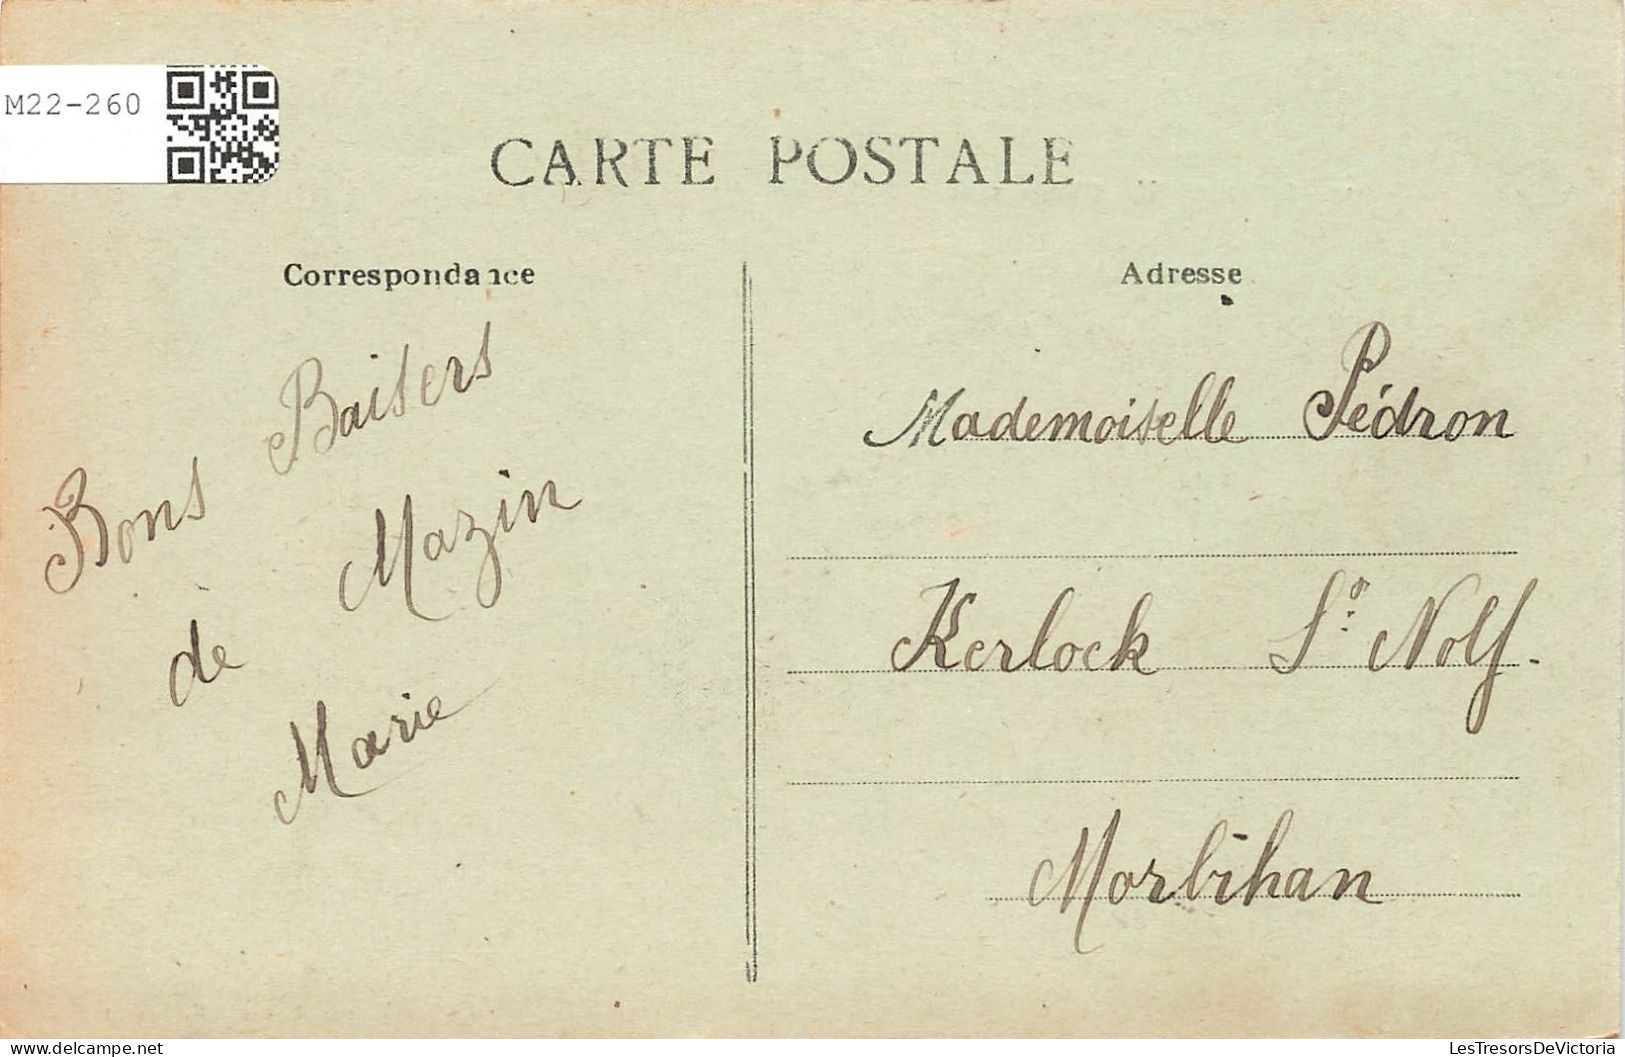 M22-260
CARTE POSTALE
Correspondance
Adresse
Bons Baisers
de Mazin
Marie
Mademoiselle Pédron
Kerlock St Nolf.
Morbihan
LesTresorsDeVictoria
delcampe.net